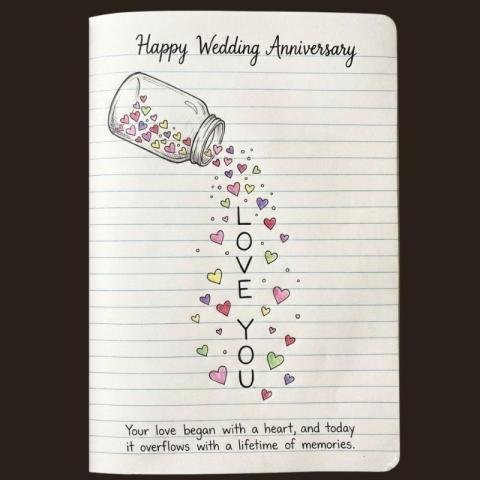 Happy Wedding Anniversary
L
O
V
E
Y
O
U
Your love began with a heart, and today
it overflows with a lifetime of memories.